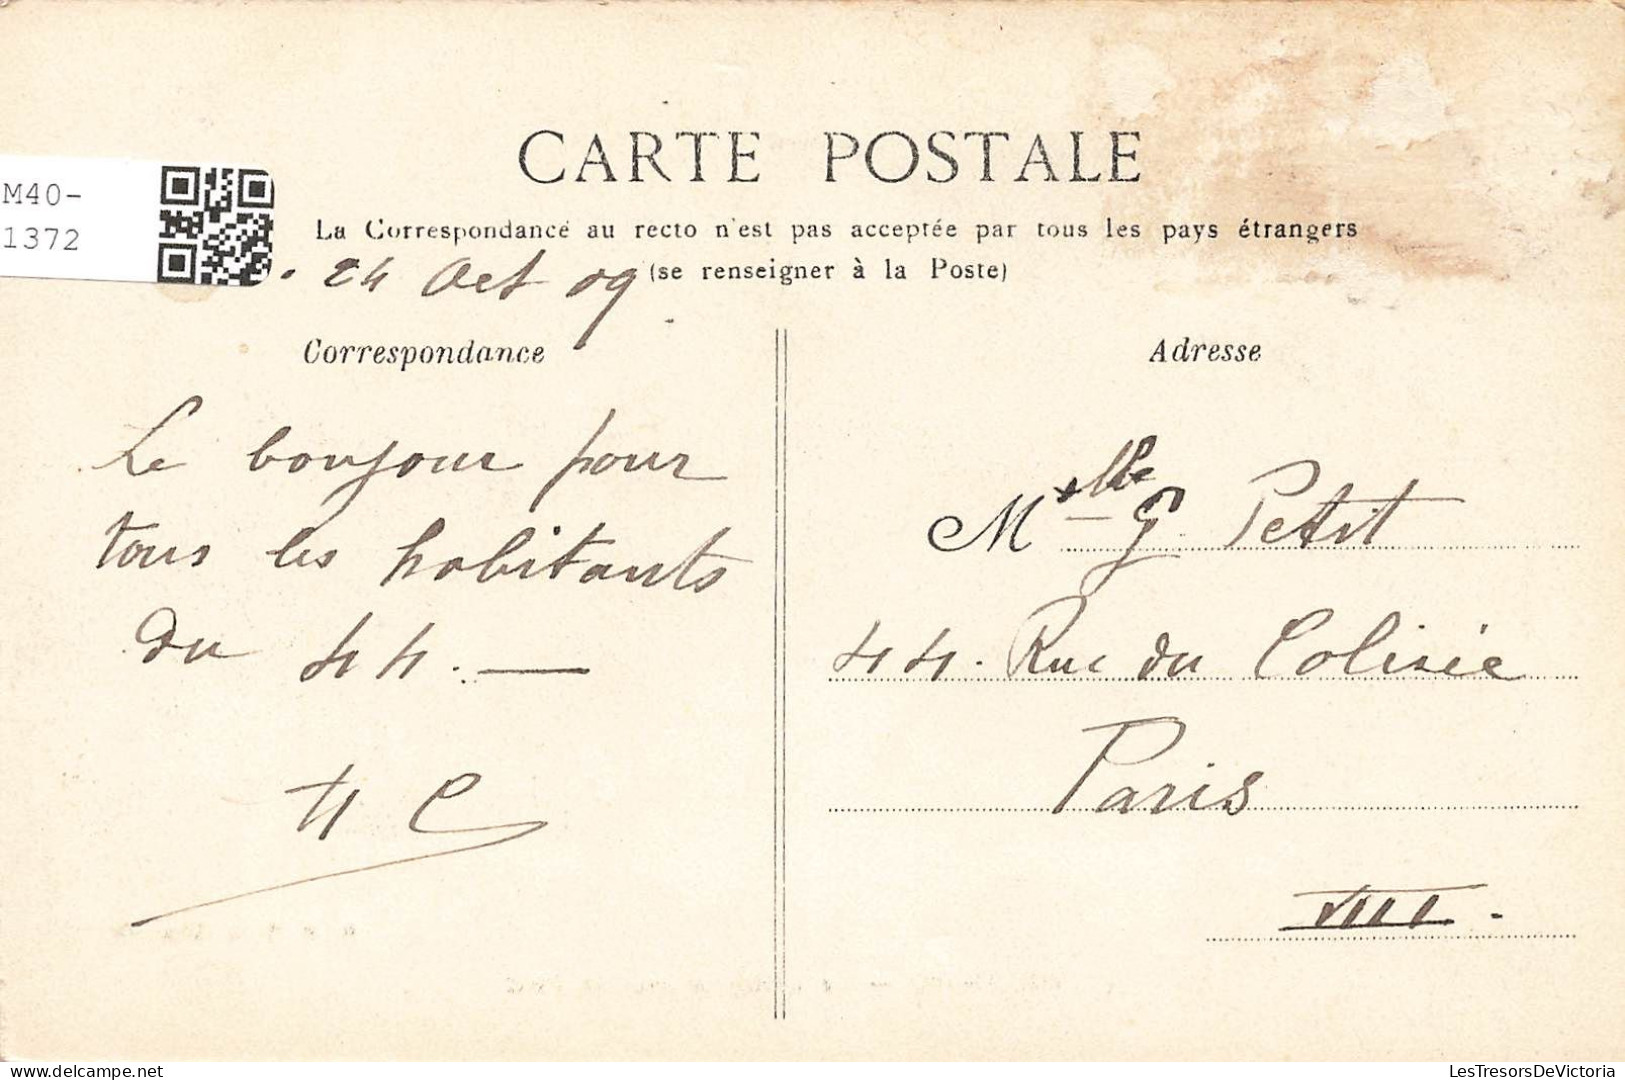 CARTE POSTALE
M40-
1372
La Correspondance au recto n'est pas acceptée par tous les pays étrangers
(se renseigner à la Poste)
24 Oct 09
Correspondance
Le bonjour pour
tous les habitants
du 44. —
H C
Adresse
Mlle G Petit
44. Rue du Colisée
Paris
VIII.
delcampe.net
LesTresorsDeVictoria